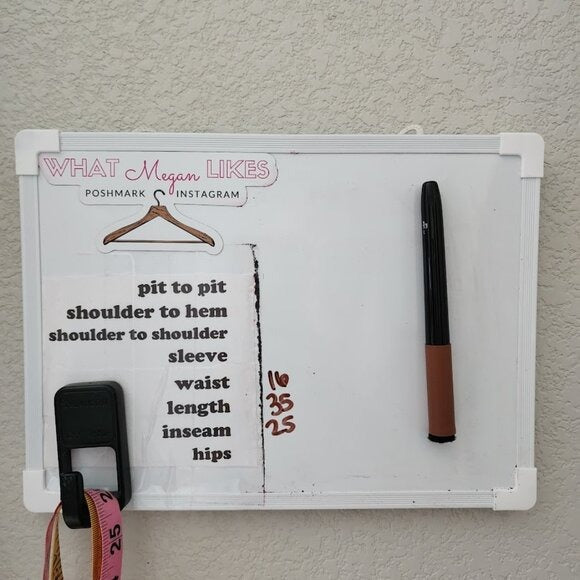 WHAT Megan LIKES
POSHMARK INSTAGRAM
pit to pit
shoulder to hem
shoulder to shoulder
sleeve
waist 16
length 35
inseam 25
hips
25